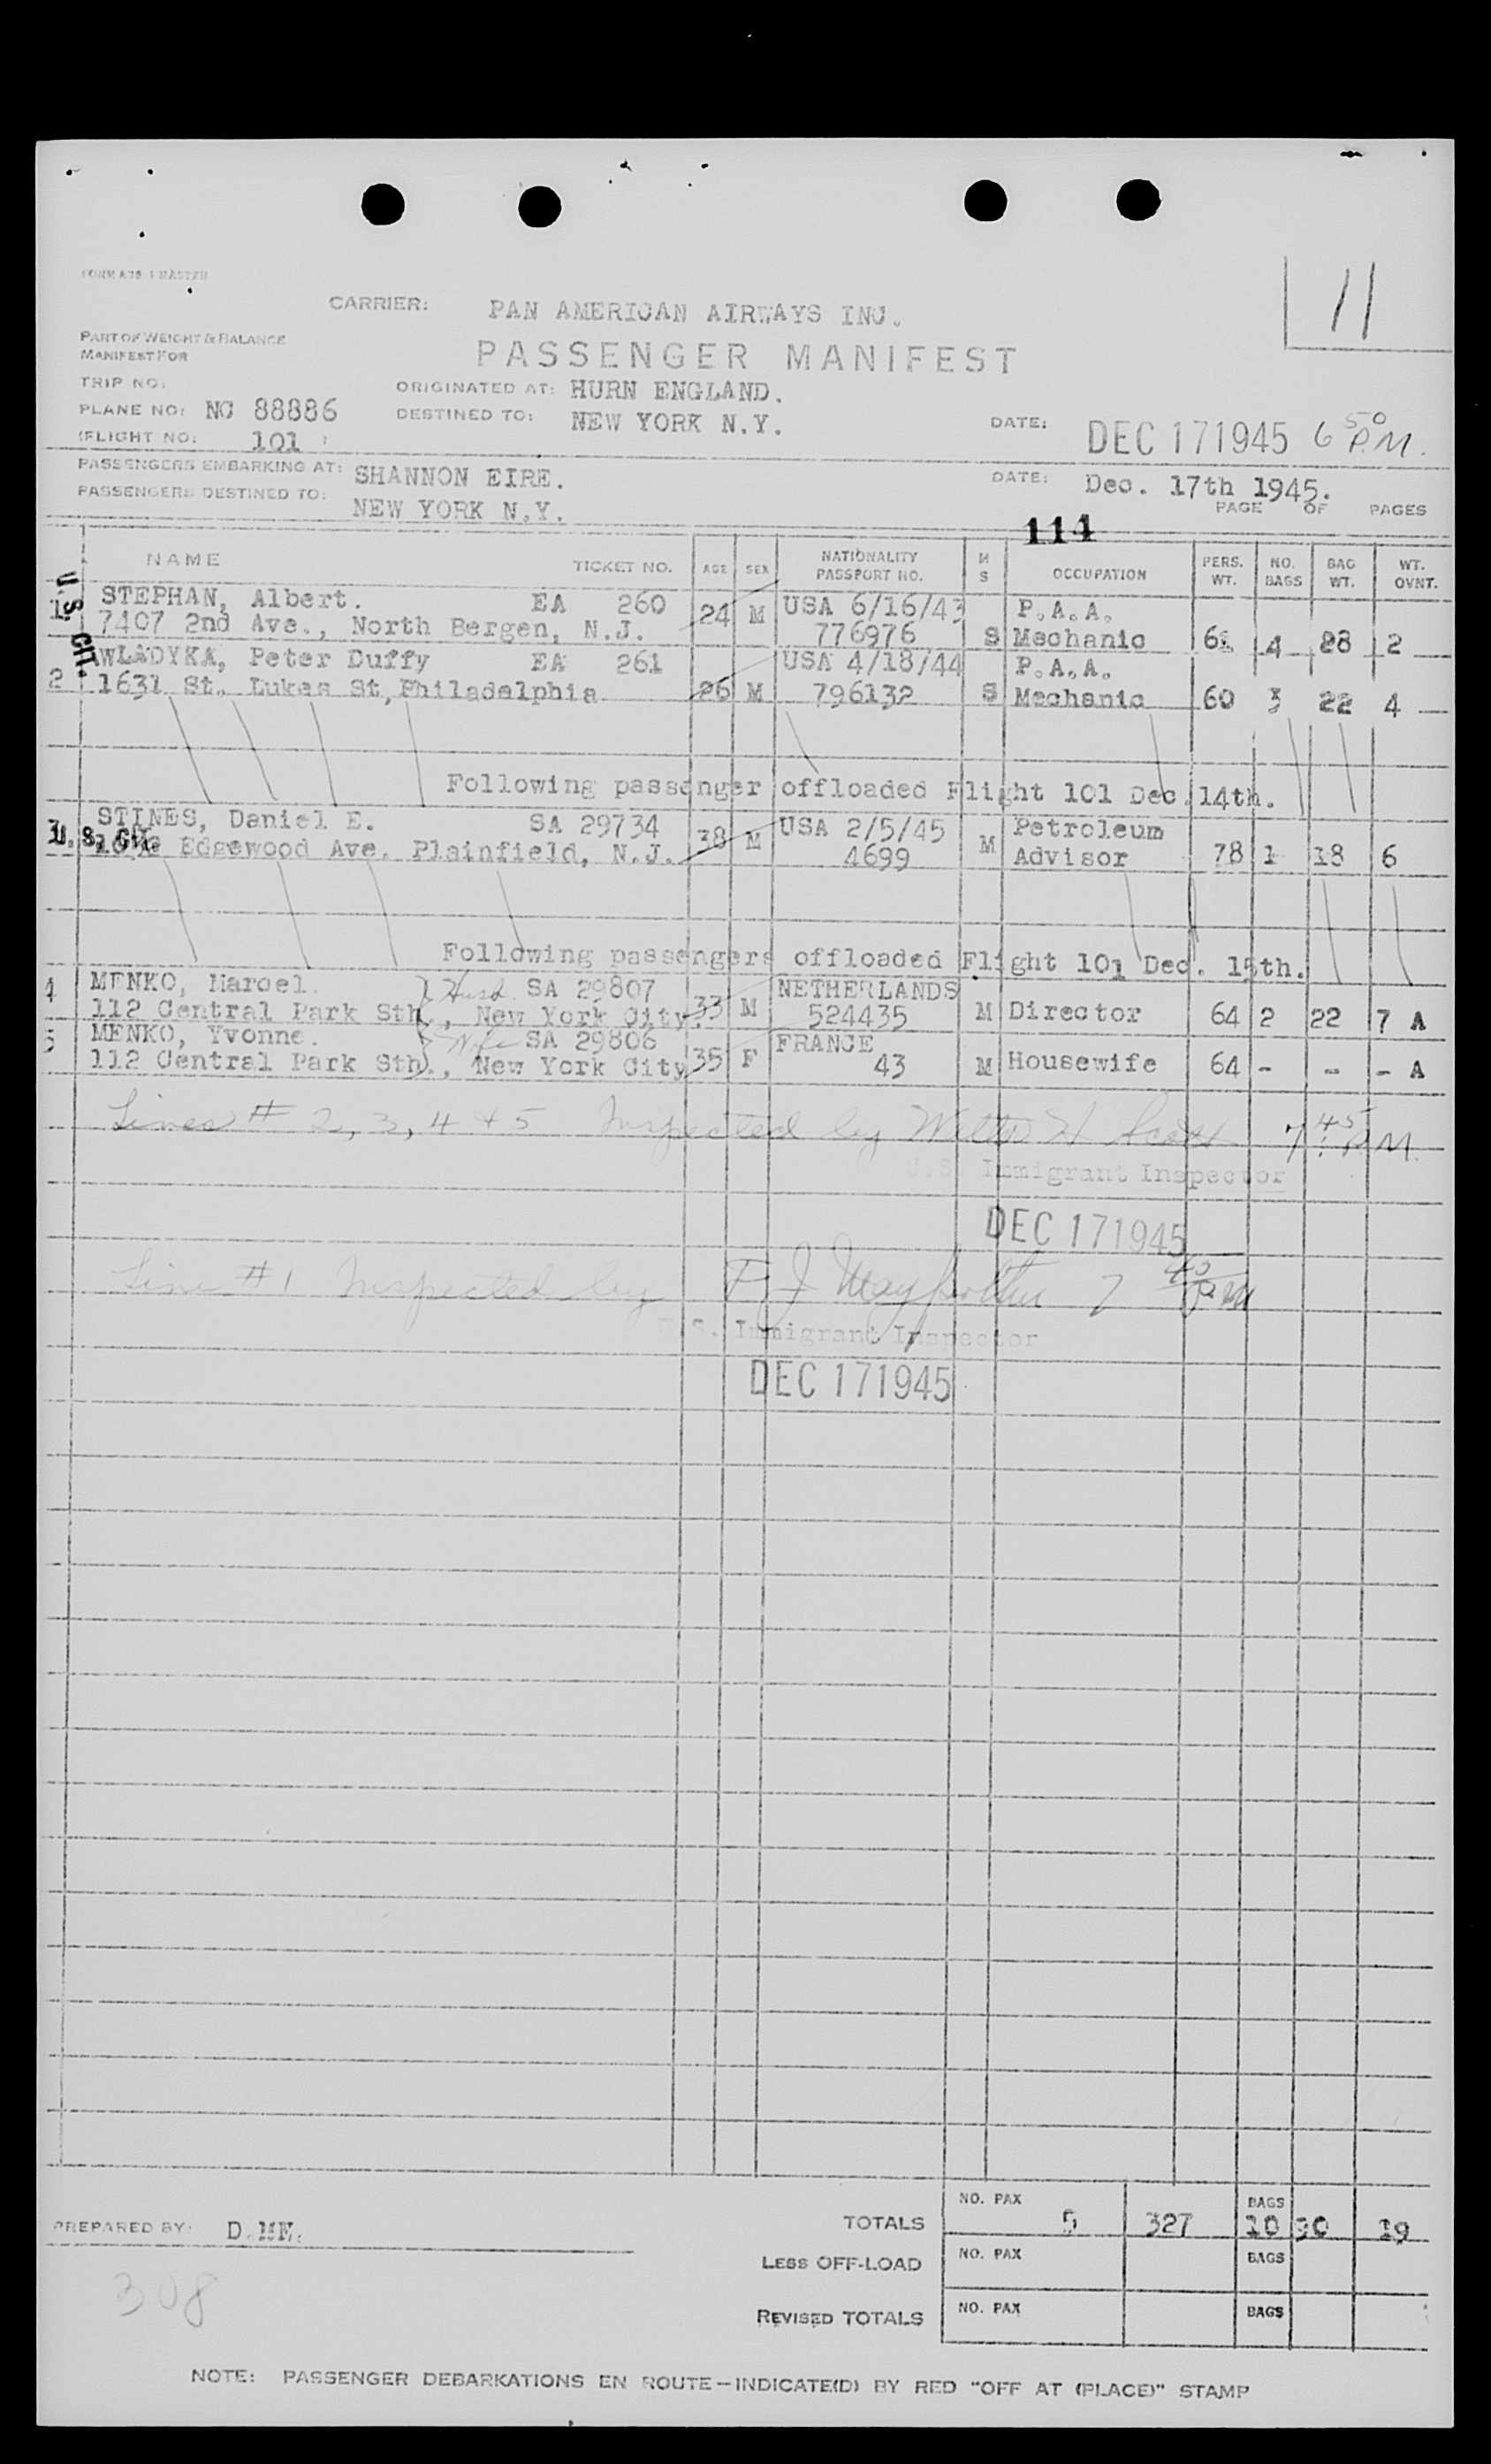 FORM A78-1 MASTER
11
CARRIER: PAN AMERICAN AIRWAYS INC.
PART OF WEIGHT & BALANCE
MANIFEST FOR
PASSENGER MANIFEST
TRIP NO:
ORIGINATED AT: HURN ENGLAND.
PLANE NO: NC 88886
DESTINED TO: NEW YORK N.Y.
DATE: DEC 17 1945 6 50 P.M.
FLIGHT NO: 101
PASSENGERS EMBARKING AT: SHANNON EIRE.
DATE: Dec. 17th 1945.
PASSENGERS DESTINED TO: NEW YORK N.Y.
PAGE OF PAGES
114
NAME TICKET NO. AGE SEX NATIONALITY PASSPORT NO. M S OCCUPATION PERS. WT. NO. BAGS BAG WT. WT. OVNT.
U.S. CIT.
1 STEPHAN, Albert. EA 260 24 M USA 6/16/43 P.A.A.
7407 2nd Ave., North Bergen, N.J. 776976 S Mechanic 4 28 2
WLADYKA, Peter Duffy EA 261 USA 4/18/44 P.A.A.
2 1631 St. Lukes St, Philadelphia 26 M 796132 S Mechanic 60 3 22 4
Following passenger offloaded Flight 101 Dec. 14th.
STINES, Daniel E. SA 29734 38 M USA 2/5/45 M Petroleum
U.S. CIT. Edgewood Ave. Plainfield, N.J. 4699 Advisor 78 1 18 6
Following passengers offloaded Flight 101 Dec. 15th.
4 MENKO, Marcel. Husb. SA 29807 33 M NETHERLANDS
112 Central Park Sth., New York City. 524435 M Director 64 2 22 7 A
5 MENKO, Yvonne. Wife SA 29806 35 F FRANCE
112 Central Park Sth., New York City 43 M Housewife 64 - - - A
Lines # 2, 3, 4 & 5 Inspected by H Scott 7:45 P.M.
U.S. Immigrant Inspector
DEC 17 1945
Line #1 Inspected by F J 7 40 PM
U.S. Immigrant Inspector
DEC 17 1945
PREPARED BY: D.ME.
TOTALS NO. PAX 5 327 BAGS 10 90 19
LESS OFF-LOAD NO. PAX BAGS
308
REVISED TOTALS NO. PAX BAGS
NOTE: PASSENGER DEBARKATIONS EN ROUTE—INDICATE(D) BY RED "OFF AT (PLACE)" STAMP